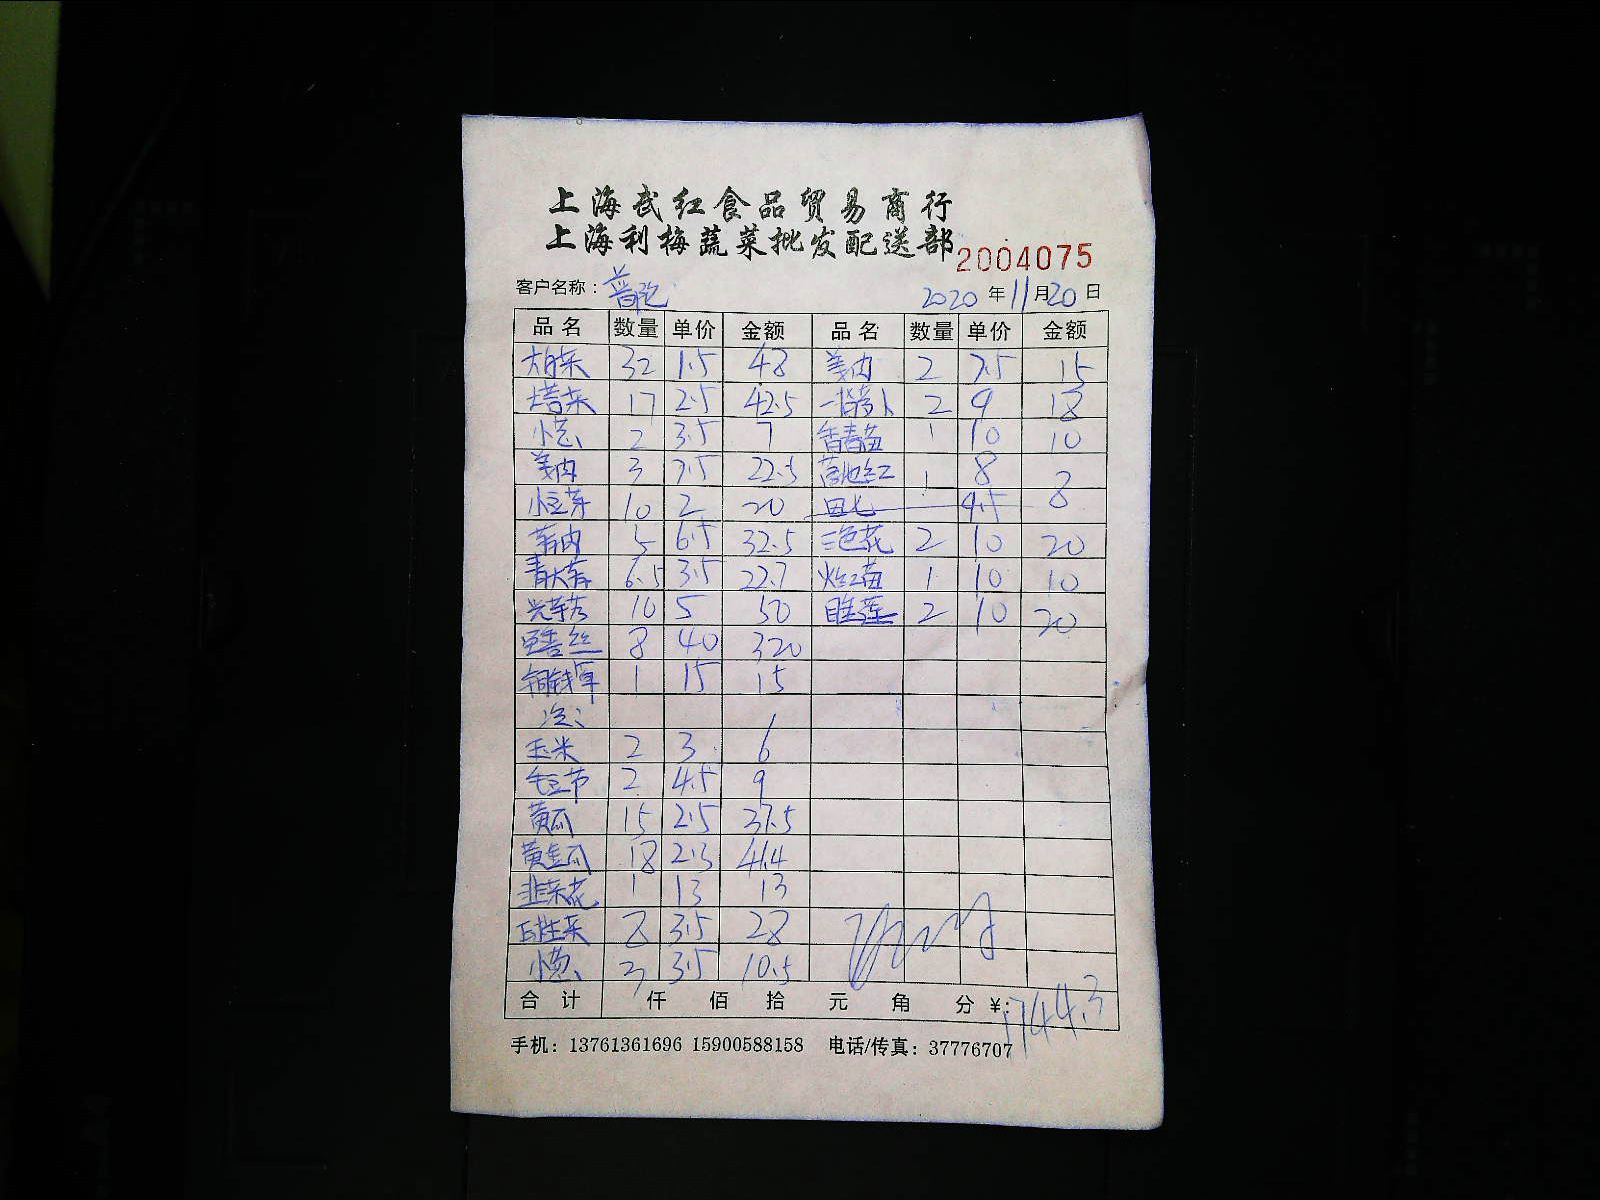 上海武红食品贸易商行
上海利梅蔬菜批发配送部
2004075
客户名称： 2020年11月20日
品名 数量 单价 金额 品名 数量 单价 金额
大白菜 32 1.5 48 姜肉 2 7.5 15
塔菜 17 2.5 42.5 2 9 18
小葱 2 3.5 7 香春苗 1 10 10
姜肉 3 7.5 22.5 1 8 8
小豆芽 10 2 20 4.5
5 6.5 32.5 三色花 2 10 20
6.5 3.5 22.7 1 10 10
10 5 50 睡莲 2 10 20
8 40 320
铜钱草 1 15 15
6
玉米 2 3 6
毛豆节 2 4.5 9
黄瓜 15 2.5 37.5
黄金瓜 18 2.3 41.4
韭菜花 1 13 13
8 3.5 28
小葱 3 3.5 10.5
合计 仟 佰 拾 元 角 分 ¥: 744.3
手机：13761361696 15900588158 电话/传真：37776707